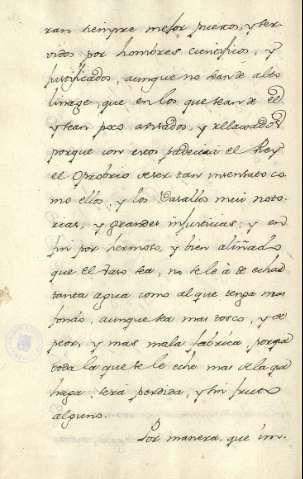 ran siempre mejor puestos, y ser-
vidos por hombres cientificos, y
justificados, aunque no sean de alto
linage, que en los que sean de el
y sean poco avisados, y relaxados
porque con estos padecerá el Rey
el oprobrio de ser tan insensato co
mo ellos, y los Vasallos mui noto-
rias, y grandes injusticias; y en
fin por hermoso, y bien aliñado
que el Vaso sea, no se le à de echar
tanta agua como al que tenga mas
fondo, aunque sea mas tosco, y de
peor, y mas mala fabrica, porque
toda la que se le eche mas de la que
haga, será perdida, y sin fruto
alguno.
Por manera, que im-